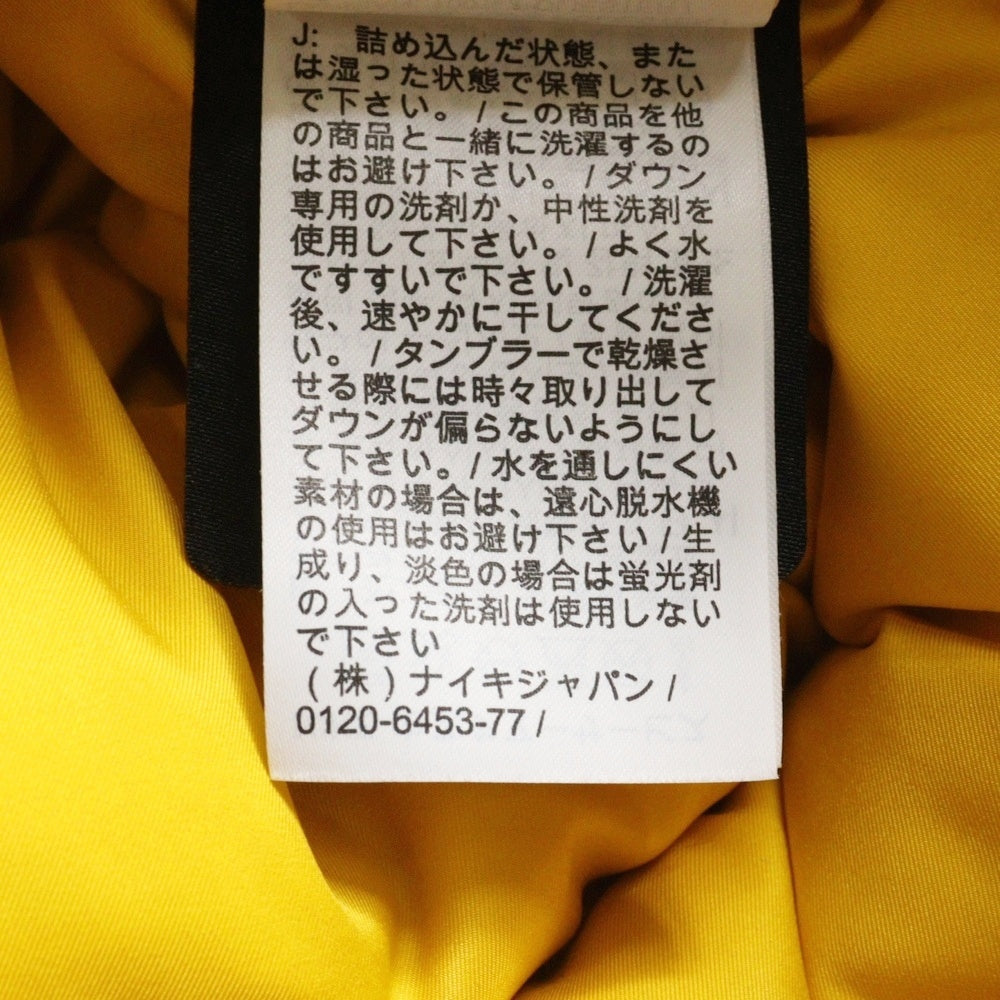 J: 詰め込んだ状態、また
は湿った状態で保管しない
で下さい。/この商品を他
の商品と一緒に洗濯するの
はお避け下さい。/ダウン
専用の洗剤か、中性洗剤を
使用して下さい。/よく水
ですすいで下さい。/洗濯
後、速やかに干してくださ
い。/タンブラーで乾燥さ
せる際には時々取り出して
ダウンが偏らないようにし
て下さい。/水を通しにくい
素材の場合は、遠心脱水機
の使用はお避け下さい/生
成り、淡色の場合は蛍光剤
の入った洗剤は使用しない
で下さい
(株)ナイキジャパン/
0120-6453-77/